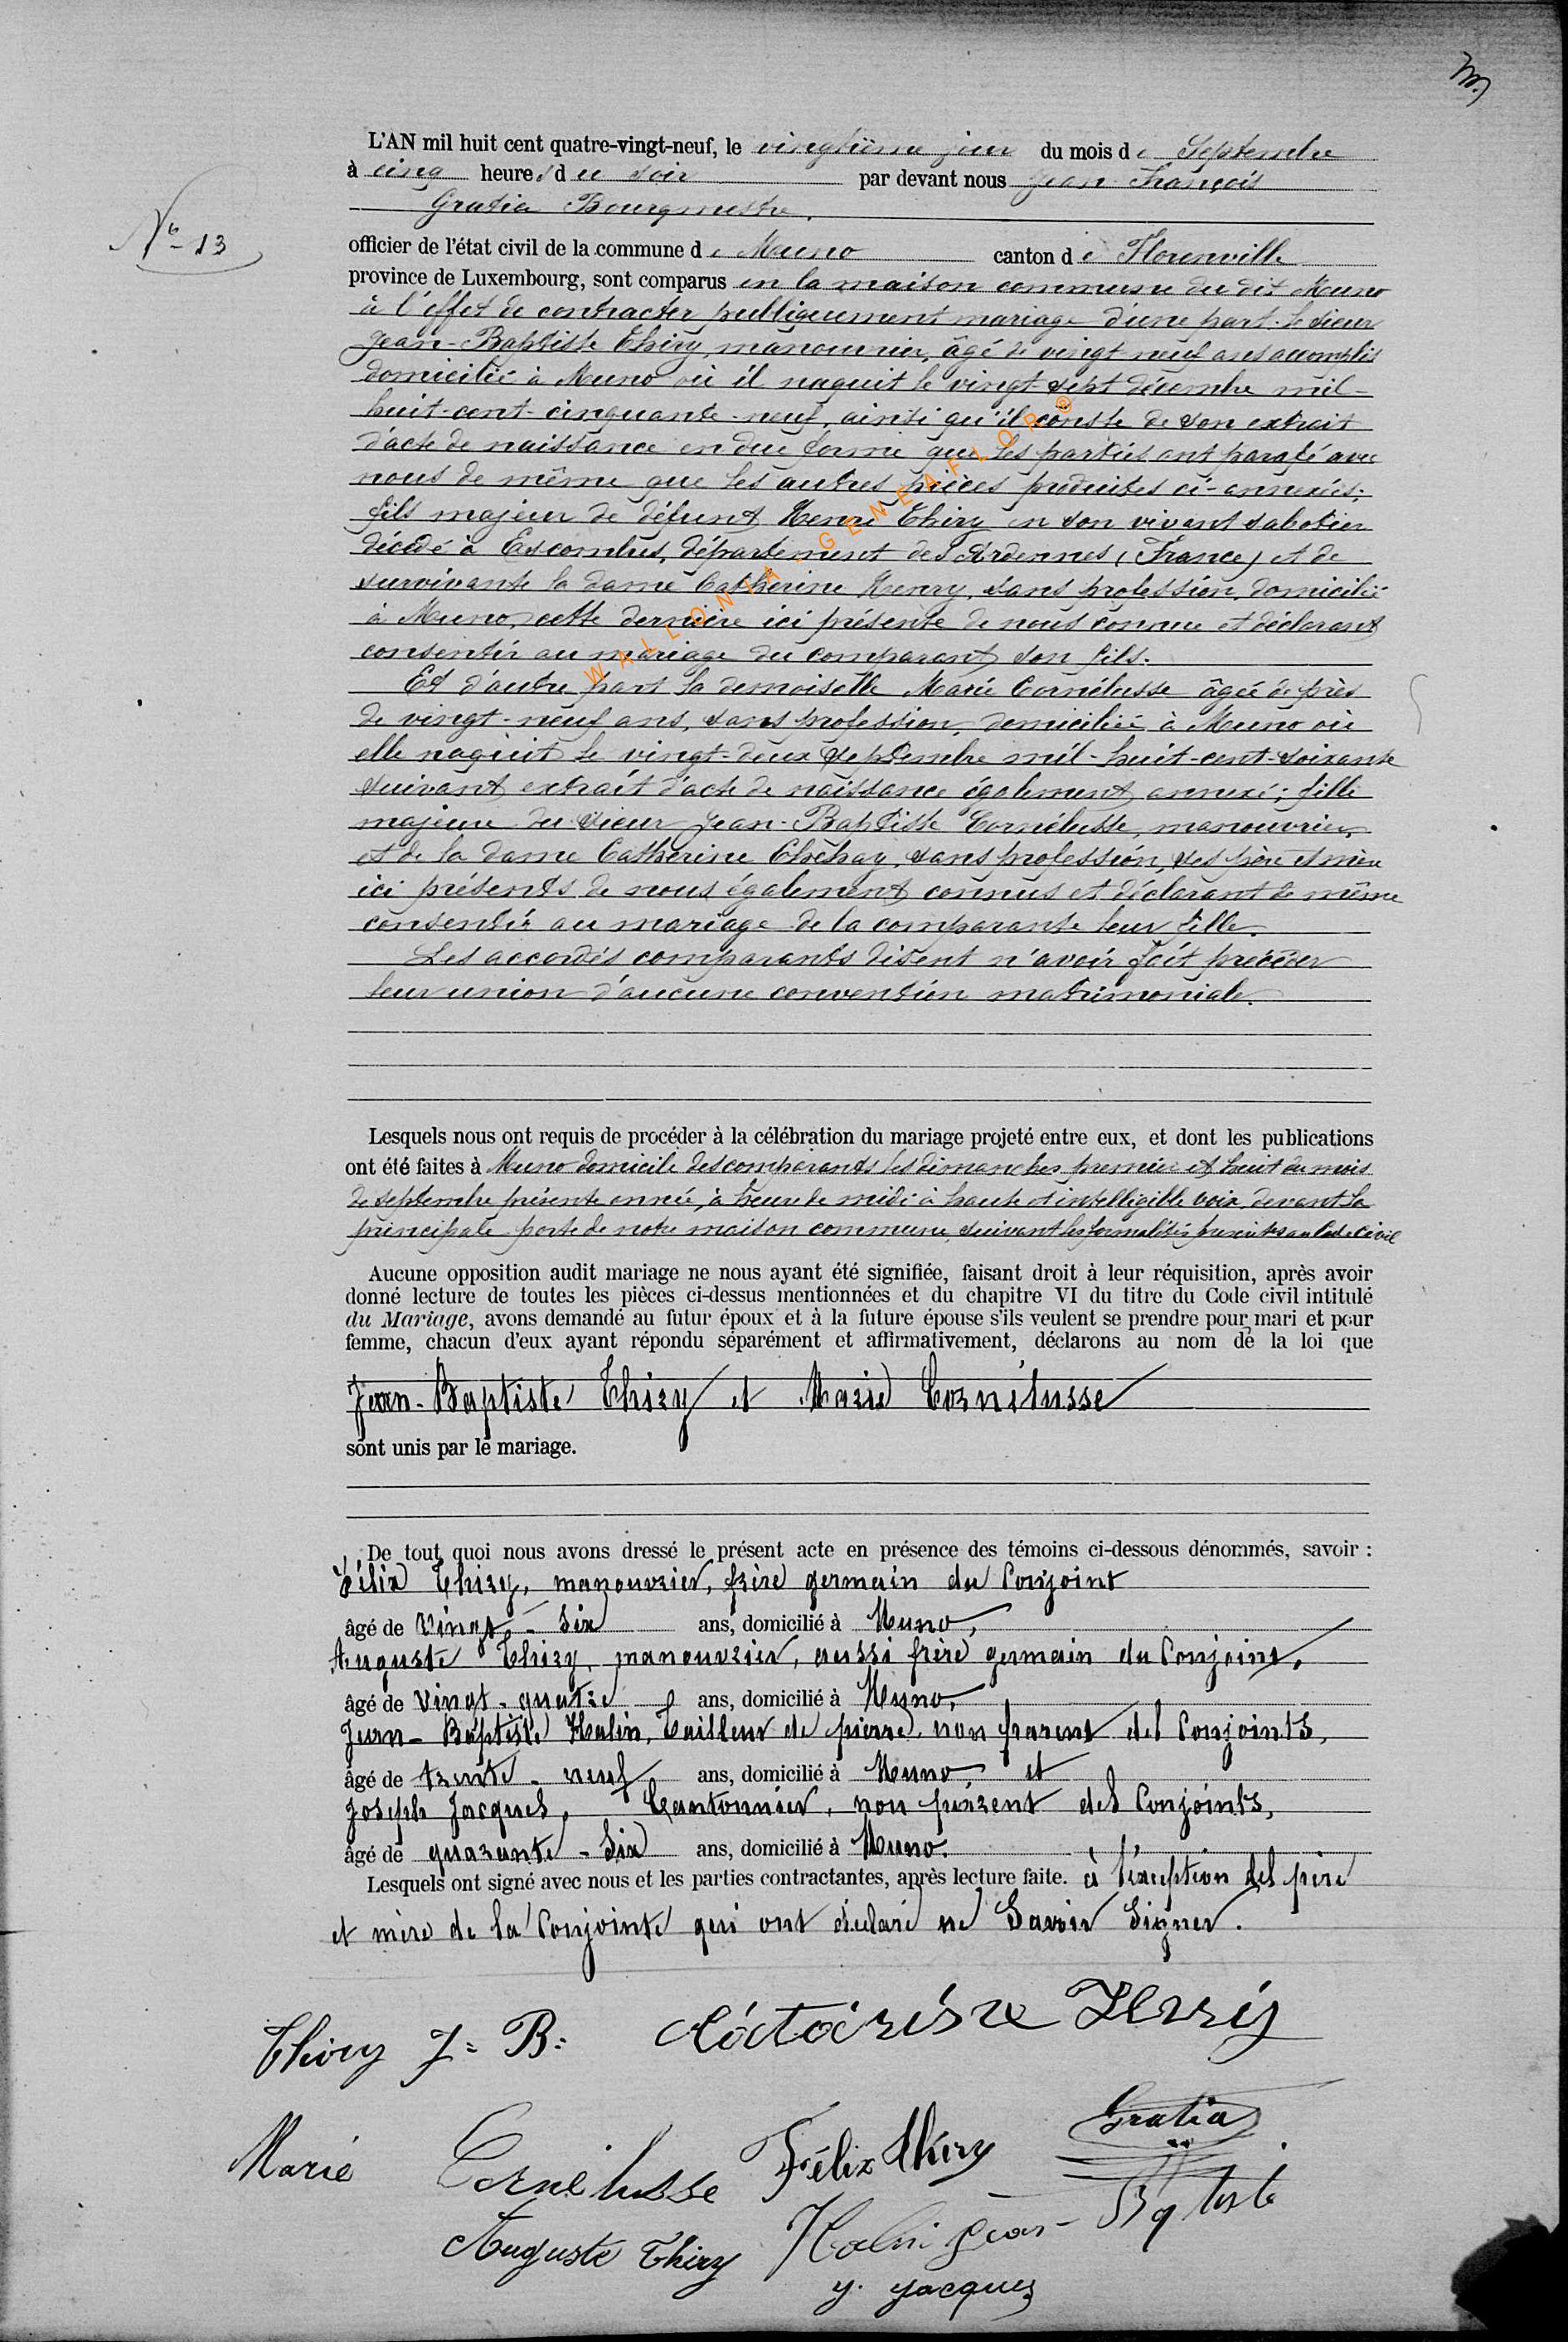 L'AN mil huit cent quatre-vingt-neuf, le vingtième jour du mois de Septembre
à cinq heures du soir par devant nous Jean François
Gratia Bourgmestre.
No 13
officier de l'état civil de la commune de Muno canton de Florenville
province de Luxembourg, sont comparus en la maison commune du dit Muno
à l'effet de contracter publiquement mariage d'une part le sieur
Jean-Baptiste Thiry, manouvrier, âgé de vingt-neuf ans accomplis
domicilié à Muno où il naquit le vingt-sept décembre mil-
huit-cent-cinquante-neuf, ainsi qu'il conste de son extrait
d'acte de naissance en due forme que les parties ont parafé avec
nous de même que les autres pièces produites ci-annexées;
fils majeur de défunt Henri Thiry en son vivant sabotier
décédé à Escombres, département des Ardennes (France) et de
survivante la dame Catherine Henry, sans profession, domiciliée
à Muno, cette dernière ici présente de nous connue et déclarant
consentir au mariage du comparant son fils.
Et d'autre part la demoiselle Marie Cornélusse âgée de près
de vingt-neuf ans, sans profession, domiciliée à Muno où
elle naquit le vingt-deux septembre mil-huit-cent-soixante
suivant extrait d'acte de naissance également annexé; fille
majeure du sieur Jean-Baptiste Cornélusse, manouvrier,
et de la dame Catherine Chéhay, sans profession, ses père et mère
ici présents de nous également connus et déclarant de même
consentir au mariage de la comparante leur fille.
Les accordés comparants disent n'avoir fait précéder
leur union d'aucune convention matrimoniale.
WALLONIA-GENEAFLOR®
Lesquels nous ont requis de procéder à la célébration du mariage projeté entre eux, et dont les publications
ont été faites à Muno domicile des comparants les dimanches premier et huit du mois
de septembre présente année, à heure de midi à haute et intelligible voix, devant la
principale porte de notre maison commune, suivant les formalités prescrites au Code Civil
Aucune opposition audit mariage ne nous ayant été signifiée, faisant droit à leur réquisition, après avoir
donné lecture de toutes les pièces ci-dessus mentionnées et du chapitre VI du titre du Code civil intitulé
du Mariage, avons demandé au futur époux et à la future épouse s'ils veulent se prendre pour mari et pour
femme, chacun d'eux ayant répondu séparément et affirmativement, déclarons au nom de la loi que
Jean-Baptiste Thiry et Marie Cornélusse
sont unis par le mariage.
De tout quoi nous avons dressé le présent acte en présence des témoins ci-dessous dénommés, savoir :
Félix Thiry, manouvrier, frère germain du Conjoint
âgé de vingt-six ans, domicilié à Muno,
Auguste Thiry, manouvrier, aussi frère germain du Conjoint,
âgé de vingt-quatre ans, domicilié à Muno,
Jean-Baptiste Halin, tailleur de pierre, non parent des Conjoints,
âgé de trente-neuf ans, domicilié à Muno, et
Joseph Jacques, Cantonnier, non parent des Conjoints,
âgé de quarante-six ans, domicilié à Muno.
Lesquels ont signé avec nous et les parties contractantes, après lecture faite. à l'exception des père
et mère de la Conjointe qui ont déclaré ne Savoir Signer.
Thiry J=B:
Marie Cornelusse Félix Thiry Gratia
Auguste Thiry Halin Jean-Bqtiste
y. yacques